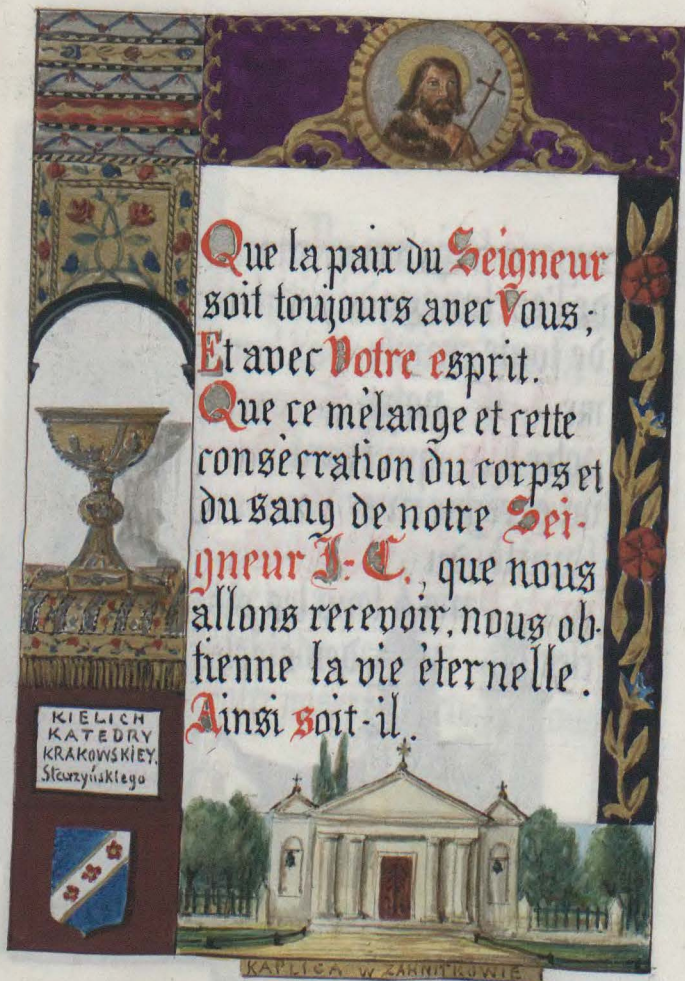 Que la paix du Seigneur
soit toujours avec Vous;
Et avec Votre esprit.
Que ce mèlange et cette
consècration du corps et
du sang de notre Sei-
gneur J.-C., que nous
allons recevoir, nous ob-
tienne la vie èternelle.
Ainsi soit-il.
KIELICH
KATEDRY
KRAKOWSKIEY.
Starzyńskiego
KAPLICA W ZAHNITKOWIE